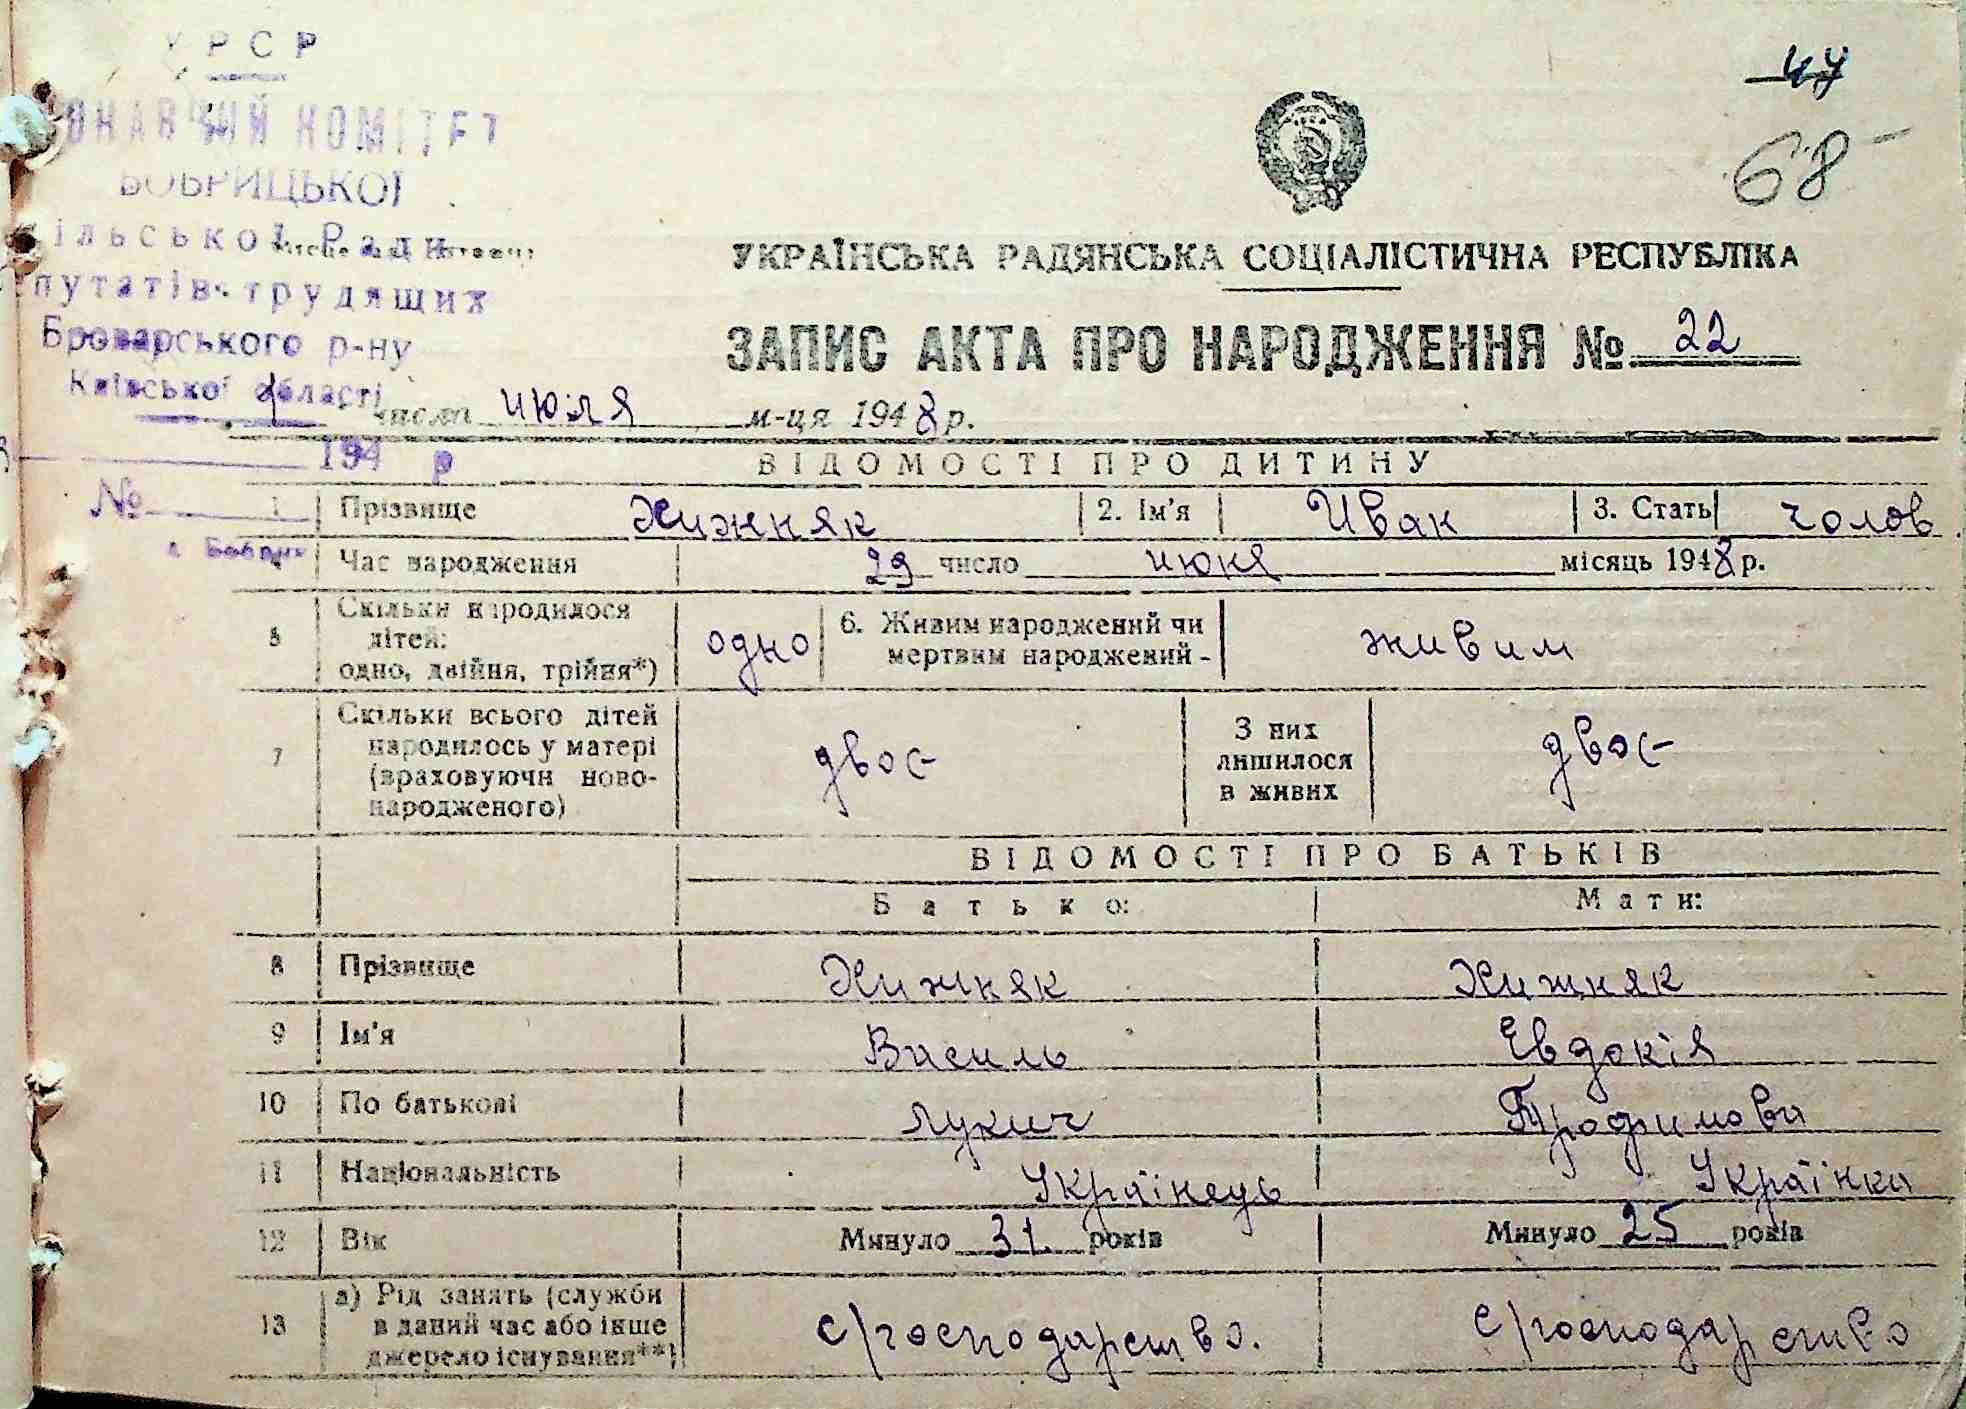 УРСР
ОНАВЧИЙ КОМІТЕТ
БОБРИЦЬКОЇ
ільської Ради
путатів трудящих
Броварського р-ну
Київської області
194 р
№
с. Бобрик
44
68
УКРАЇНСЬКА РАДЯНСЬКА СОЦІАЛІСТИЧНА РЕСПУБЛІКА
ЗАПИС АКТА ПРО НАРОДЖЕННЯ № 22
1 числа июля м-ця 1948 р.
ВІДОМОСТІ ПРО ДИТИНУ
1 Прізвище Хижняк 2. Ім'я Иван 3. Стать чолов
Час народження 29 число июня місяць 1948 р.
5 Скільки народилося дітей: одно, двійня, трійня*) одно 6. Живим народжений чи мертвим народжений - живим
7 Скільки всього дітей народилось у матері (враховуючи новонародженого) двоє З них лишилося в живих двоє
ВІДОМОСТІ ПРО БАТЬКІВ
Батько: Мати:
8 Прізвище Хижняк Хижняк
9 Ім'я Василь Евдокія
10 По батькові Лукич Трофимовна
11 Національність Українець Українка
12 Вік Минуло 31 років Минуло 25 років
13 а) Рід занять (служби в даний час або інше джерело існування**) с/господарство. с/господарство